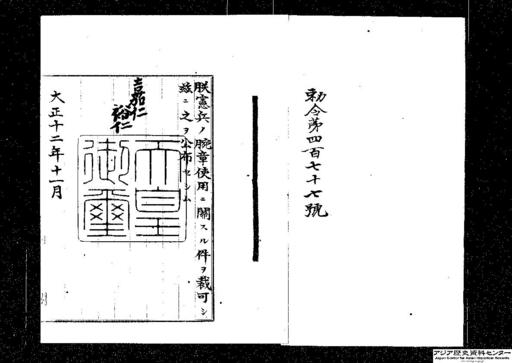 勅令第四百七十七號
朕憲兵ノ腕章使用ニ關スル件ヲ裁可シ
茲ニ之ヲ公布セシム
嘉仁
裕仁
天皇御璽
大正十二年十一月
アジア歴史資料センター
Japan Center for Asian Historical Records